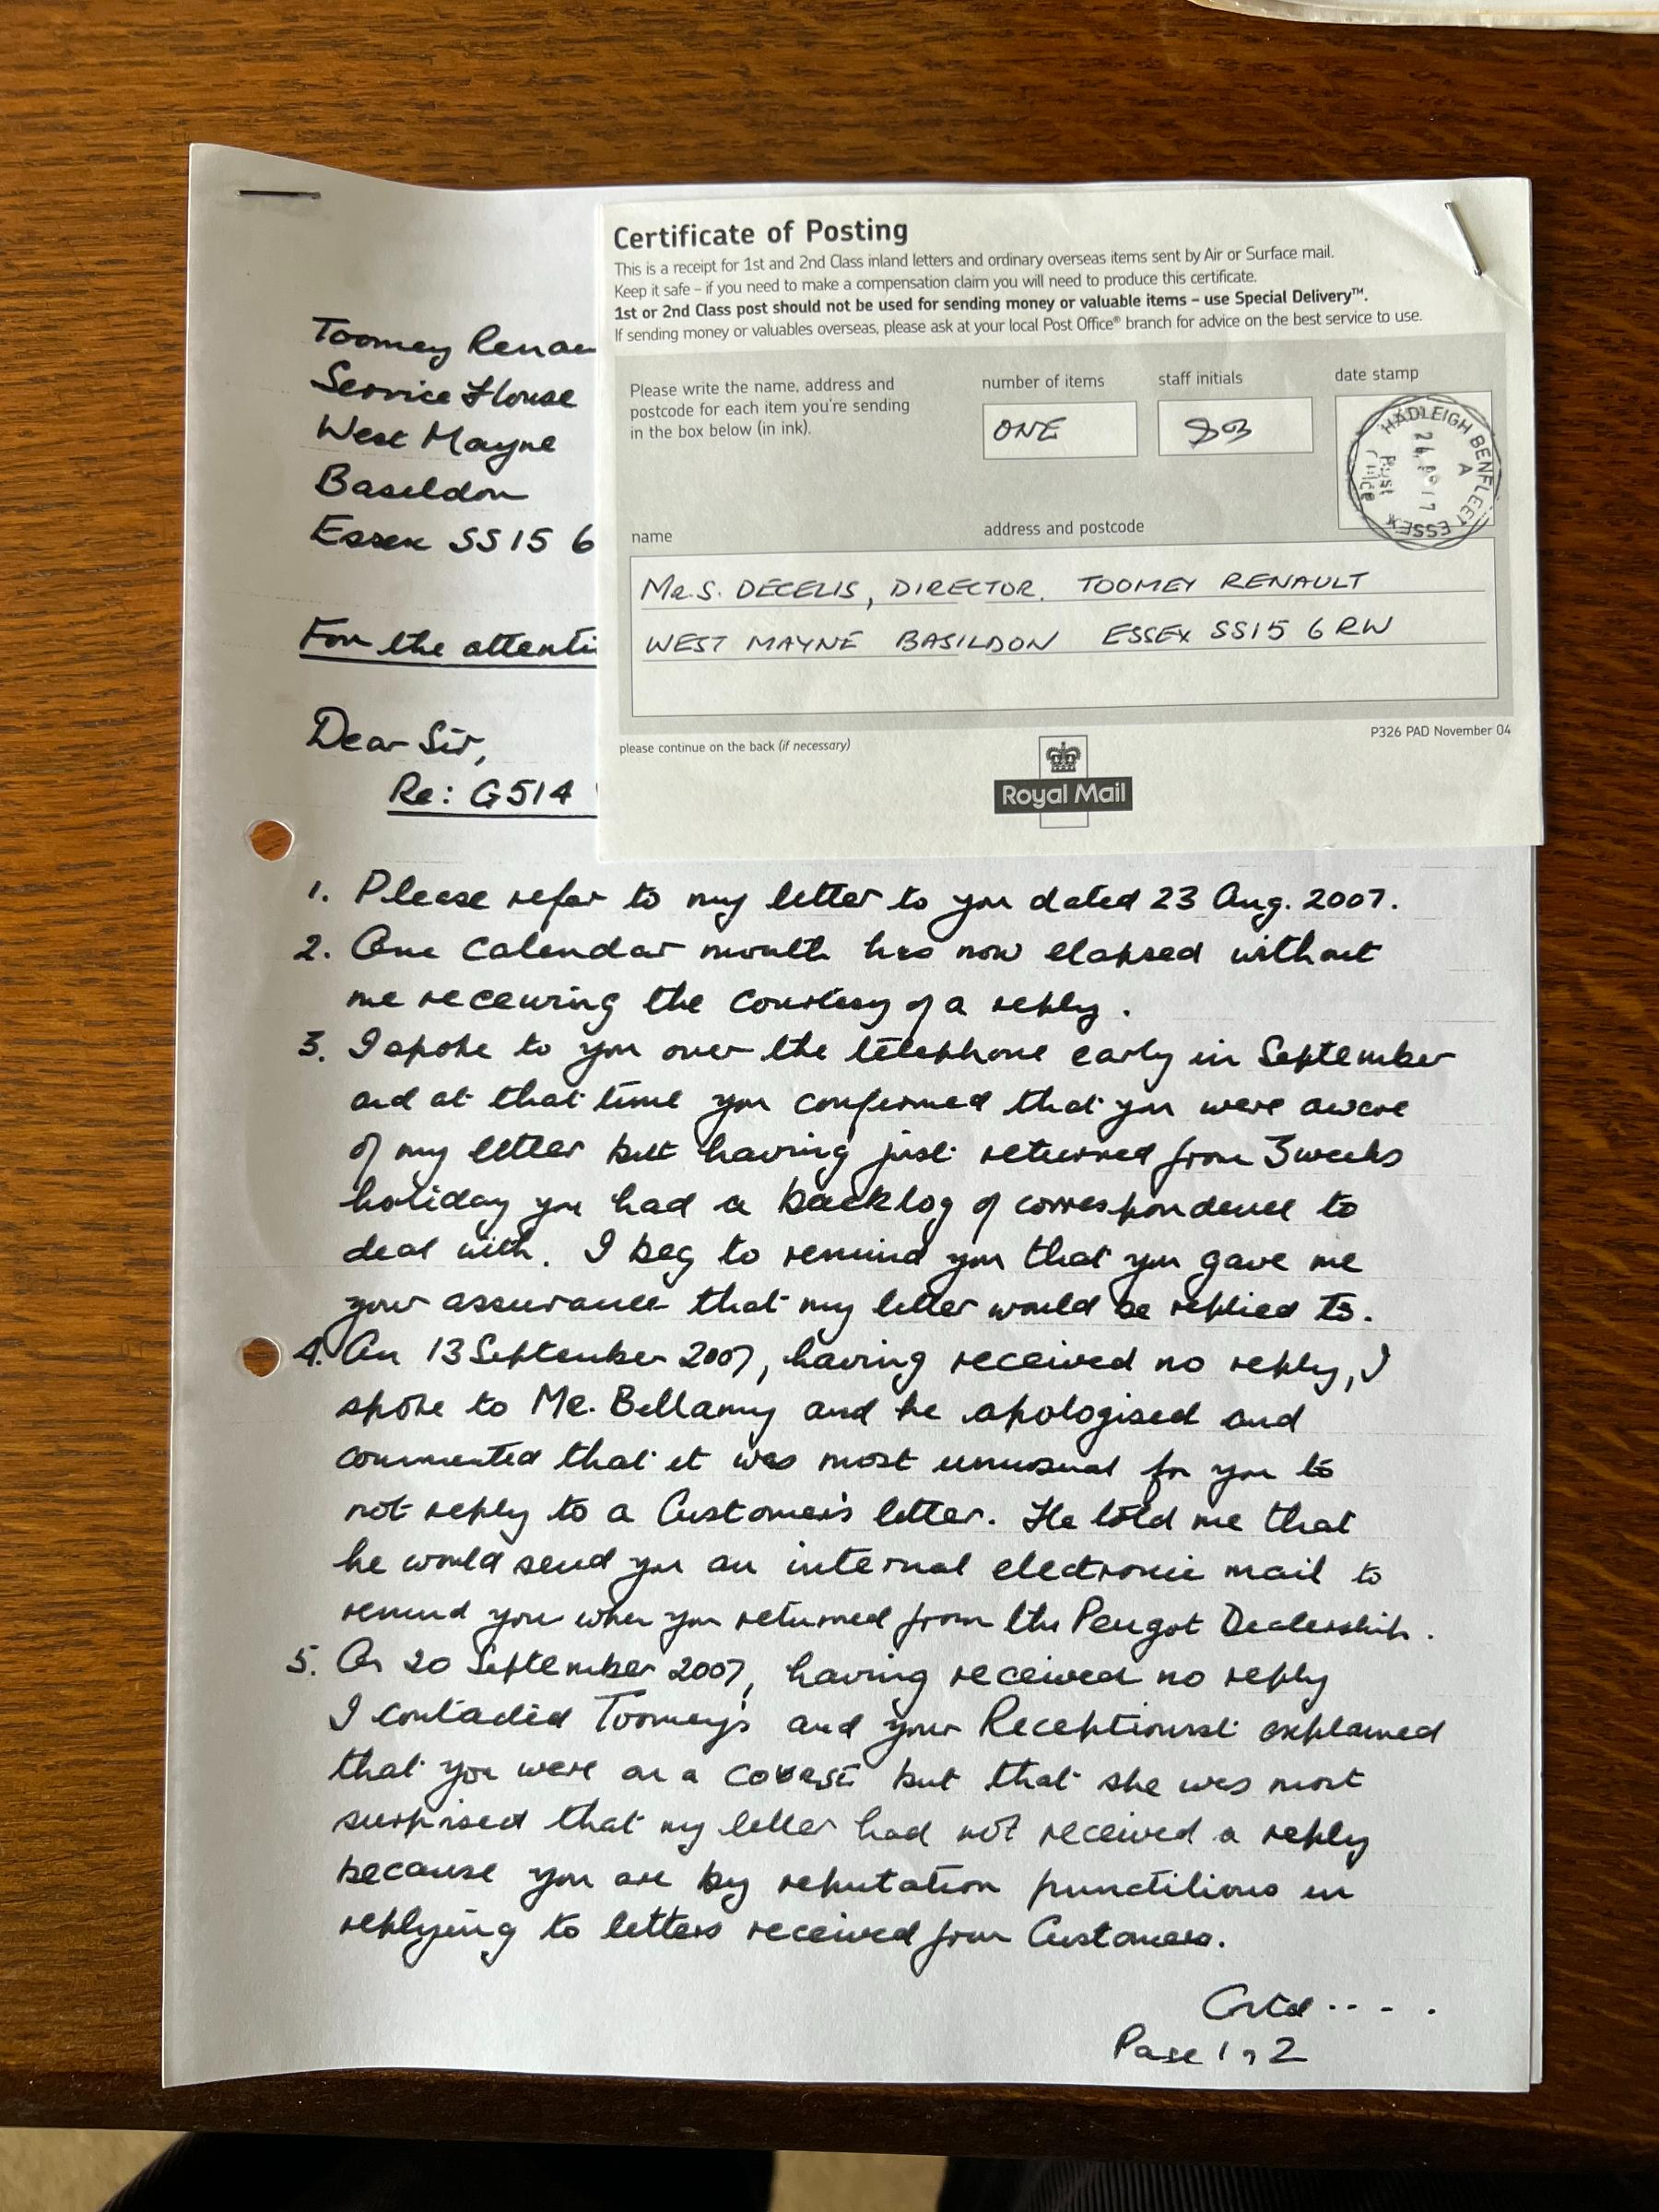 Certificate of Posting
This is a receipt for 1st and 2nd Class inland letters and ordinary overseas items sent by Air or Surface mail.
Keep it safe – if you need to make a compensation claim you will need to produce this certificate.
1st or 2nd Class post should not be used for sending money or valuable items – use Special Delivery™.
If sending money or valuables overseas, please ask at your local Post Office® branch for advice on the best service to use.
Please write the name, address and
postcode for each item you're sending
in the box below (in ink).
number of items
ONE
staff initials
date stamp
HADLEIGH BENFLEET ESSEX
A
Post
Office
name
address and postcode
Mr. S. DECELIS, DIRECTOR, TOOMEY RENAULT
WEST MAYNE BASILDON ESSEX SS15 6RW
please continue on the back (if necessary)
P326 PAD November 04
Royal Mail
Toomey Renau
Service House
West Mayne
Basildon
Essex SS15 6
For the attenti
Dear Sir,
Re: G514
1. Please refer to my letter to you dated 23 Aug. 2007.
2. One calendar month has now elapsed without
me receiving the courtesy of a reply.
3. I spoke to you over the telephone early in September
and at that time you confirmed that you were aware
of my letter but having just returned from 3 weeks
holiday you had a backlog of correspondence to
deal with. I beg to remind you that you gave me
your assurance that my letter would be replied to.
4. On 13 September 2007, having received no reply, I
spoke to Mr. Bellamy and he apologised and
commented that it was most unusual for you to
not reply to a Customer's letter. He told me that
he would send you an internal electronic mail to
remind you when you returned from the Peugot Dealership.
5. On 20 September 2007, having received no reply
I contacted Toomey's and your Receptionist explained
that you were on a course but that she was most
surprised that my letter had not received a reply
because you are by reputation punctilious in
replying to letters received from Customers.
Contd ....
Page 1 of 2